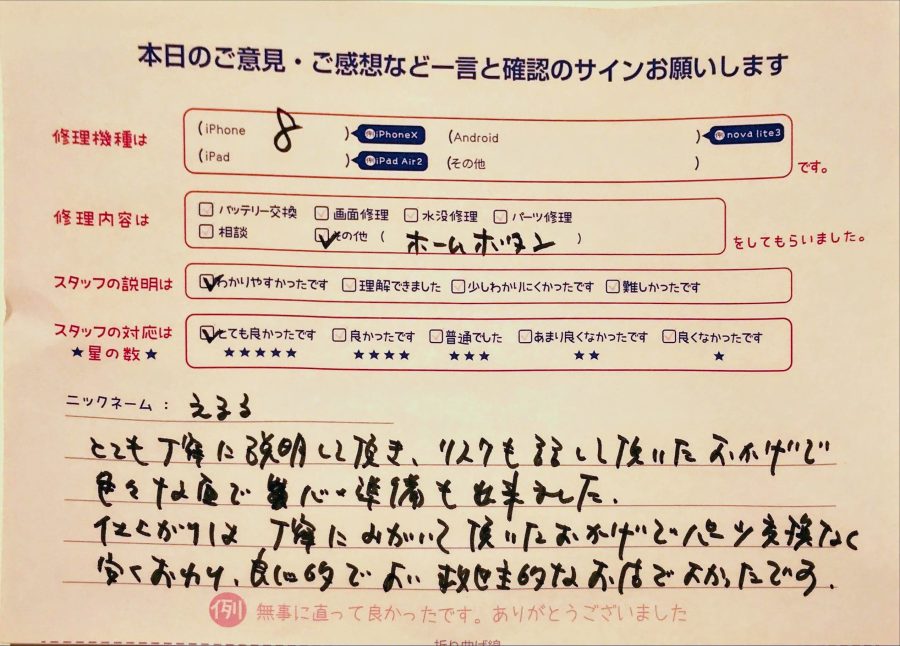 本日のご意見・ご感想など一言と確認のサインお願いします
修理機種は (iPhone 8 ) 例iPhoneX (Android ) 例nova lite3
(iPad ) 例iPad Air2 (その他 ) です。
修理内容は バッテリー交換 画面修理 水没修理 パーツ修理
相談 その他 ( ホームボタン ) をしてもらいました。
スタッフの説明は わかりやすかったです 理解できました 少しわかりにくかったです 難しかったです
スタッフの対応は とても良かったです 良かったです 普通でした あまり良くなかったです 良くなかったです
★星の数★ ★★★★★ ★★★★ ★★★ ★★ ★
ニックネーム: えまる
とても丁寧に説明して頂き、リスクもお話して頂いたおかげで
色々な面で 心の準備も出来ました。
仕上がりは丁寧にみがいて頂いたおかげでパーツ交換なく
安くおわり、良心的でよい救世主的なお店でよかったです。
例 無事に直って良かったです。ありがとうございました
折り曲げ線